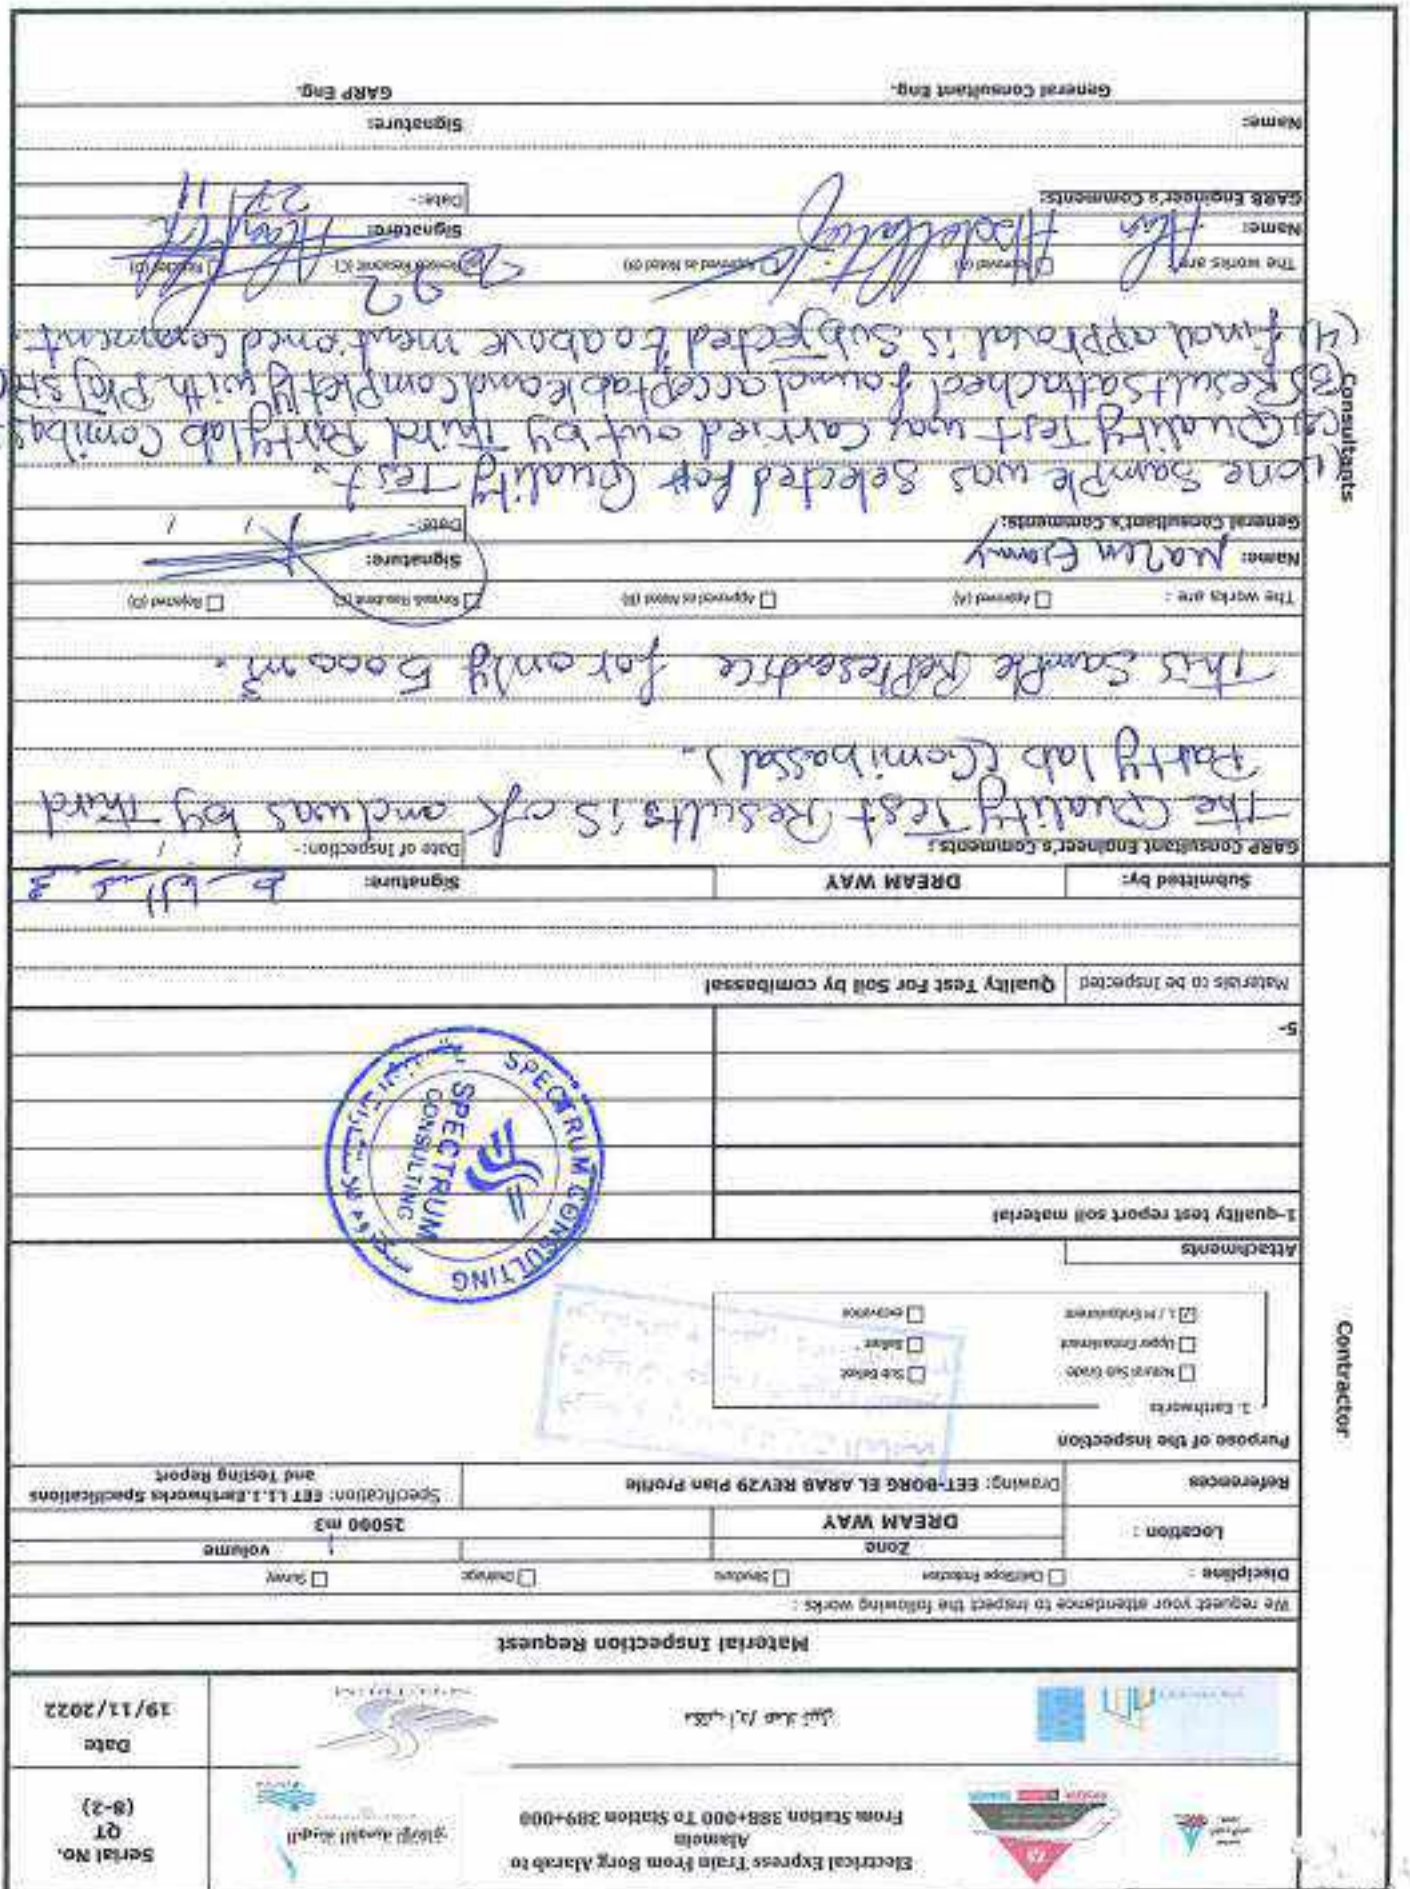 Serial No.
QT
(8-2)
Electrical Express Train From Borg Alarab to
Alamein
From Station 388+000 To Station 389+000
Date
19/11/2022
مكتب أ.د/ عماد نبيل
Material Inspection Request
We request your attendance to inspect the following works :
Discipline :
Civil/Slope Protection
Structure
Drainage
Survey
Location :
Zone
volume
DREAM WAY
25000 m3
References
Drawing: EET-BORG EL ARAB REV29 Plan Profile
Specification: EET L1.1.Earthworks Specifications
and Testing Report
Purpose of the Inspection
Earthworks
Natural Sub Grade
Sub Ballast
Upper Embankment
Ballast
Embankment
excavation
Attachments
1-quality test report soil material
5-
SPECTRUM CONSULTING
SPECTRUM
CONSULTING
Materials to be Inspected
Quality Test For Soil by comibassal
Submitted by:
DREAM WAY
Signature:
Contractor
GARP Consultant Engineer's Comments:
Date of Inspection:- / /
The Quality Test Results is ok and was by Third
Party lab (Comibassal).
This Sample Representce for only 5000 m3.
The works are :
Approved (A)
Approved as Noted (B)
Revise& Resubmit (C)
Rejected (D)
Name:
Signature:
General Consultant's Comments:
Date:- / /
1) one Sample was Selected for Quality Test.
(2) Quality Test was Carried out by Third Party lab Comibas
(3) Results attached found acceptable and completly with Proj
(4) final approval is Subjected to above mentioned comment.
Consultants
The works are :
Approved (A)
Approved as Noted (B)
Revise& Resubmit (C)
Rejected (D)
Name:
Signature:
27/11
GARB Engineer's Comments:
Date:-
Name:
Signature:
General Consultant Eng.
GARP Eng.